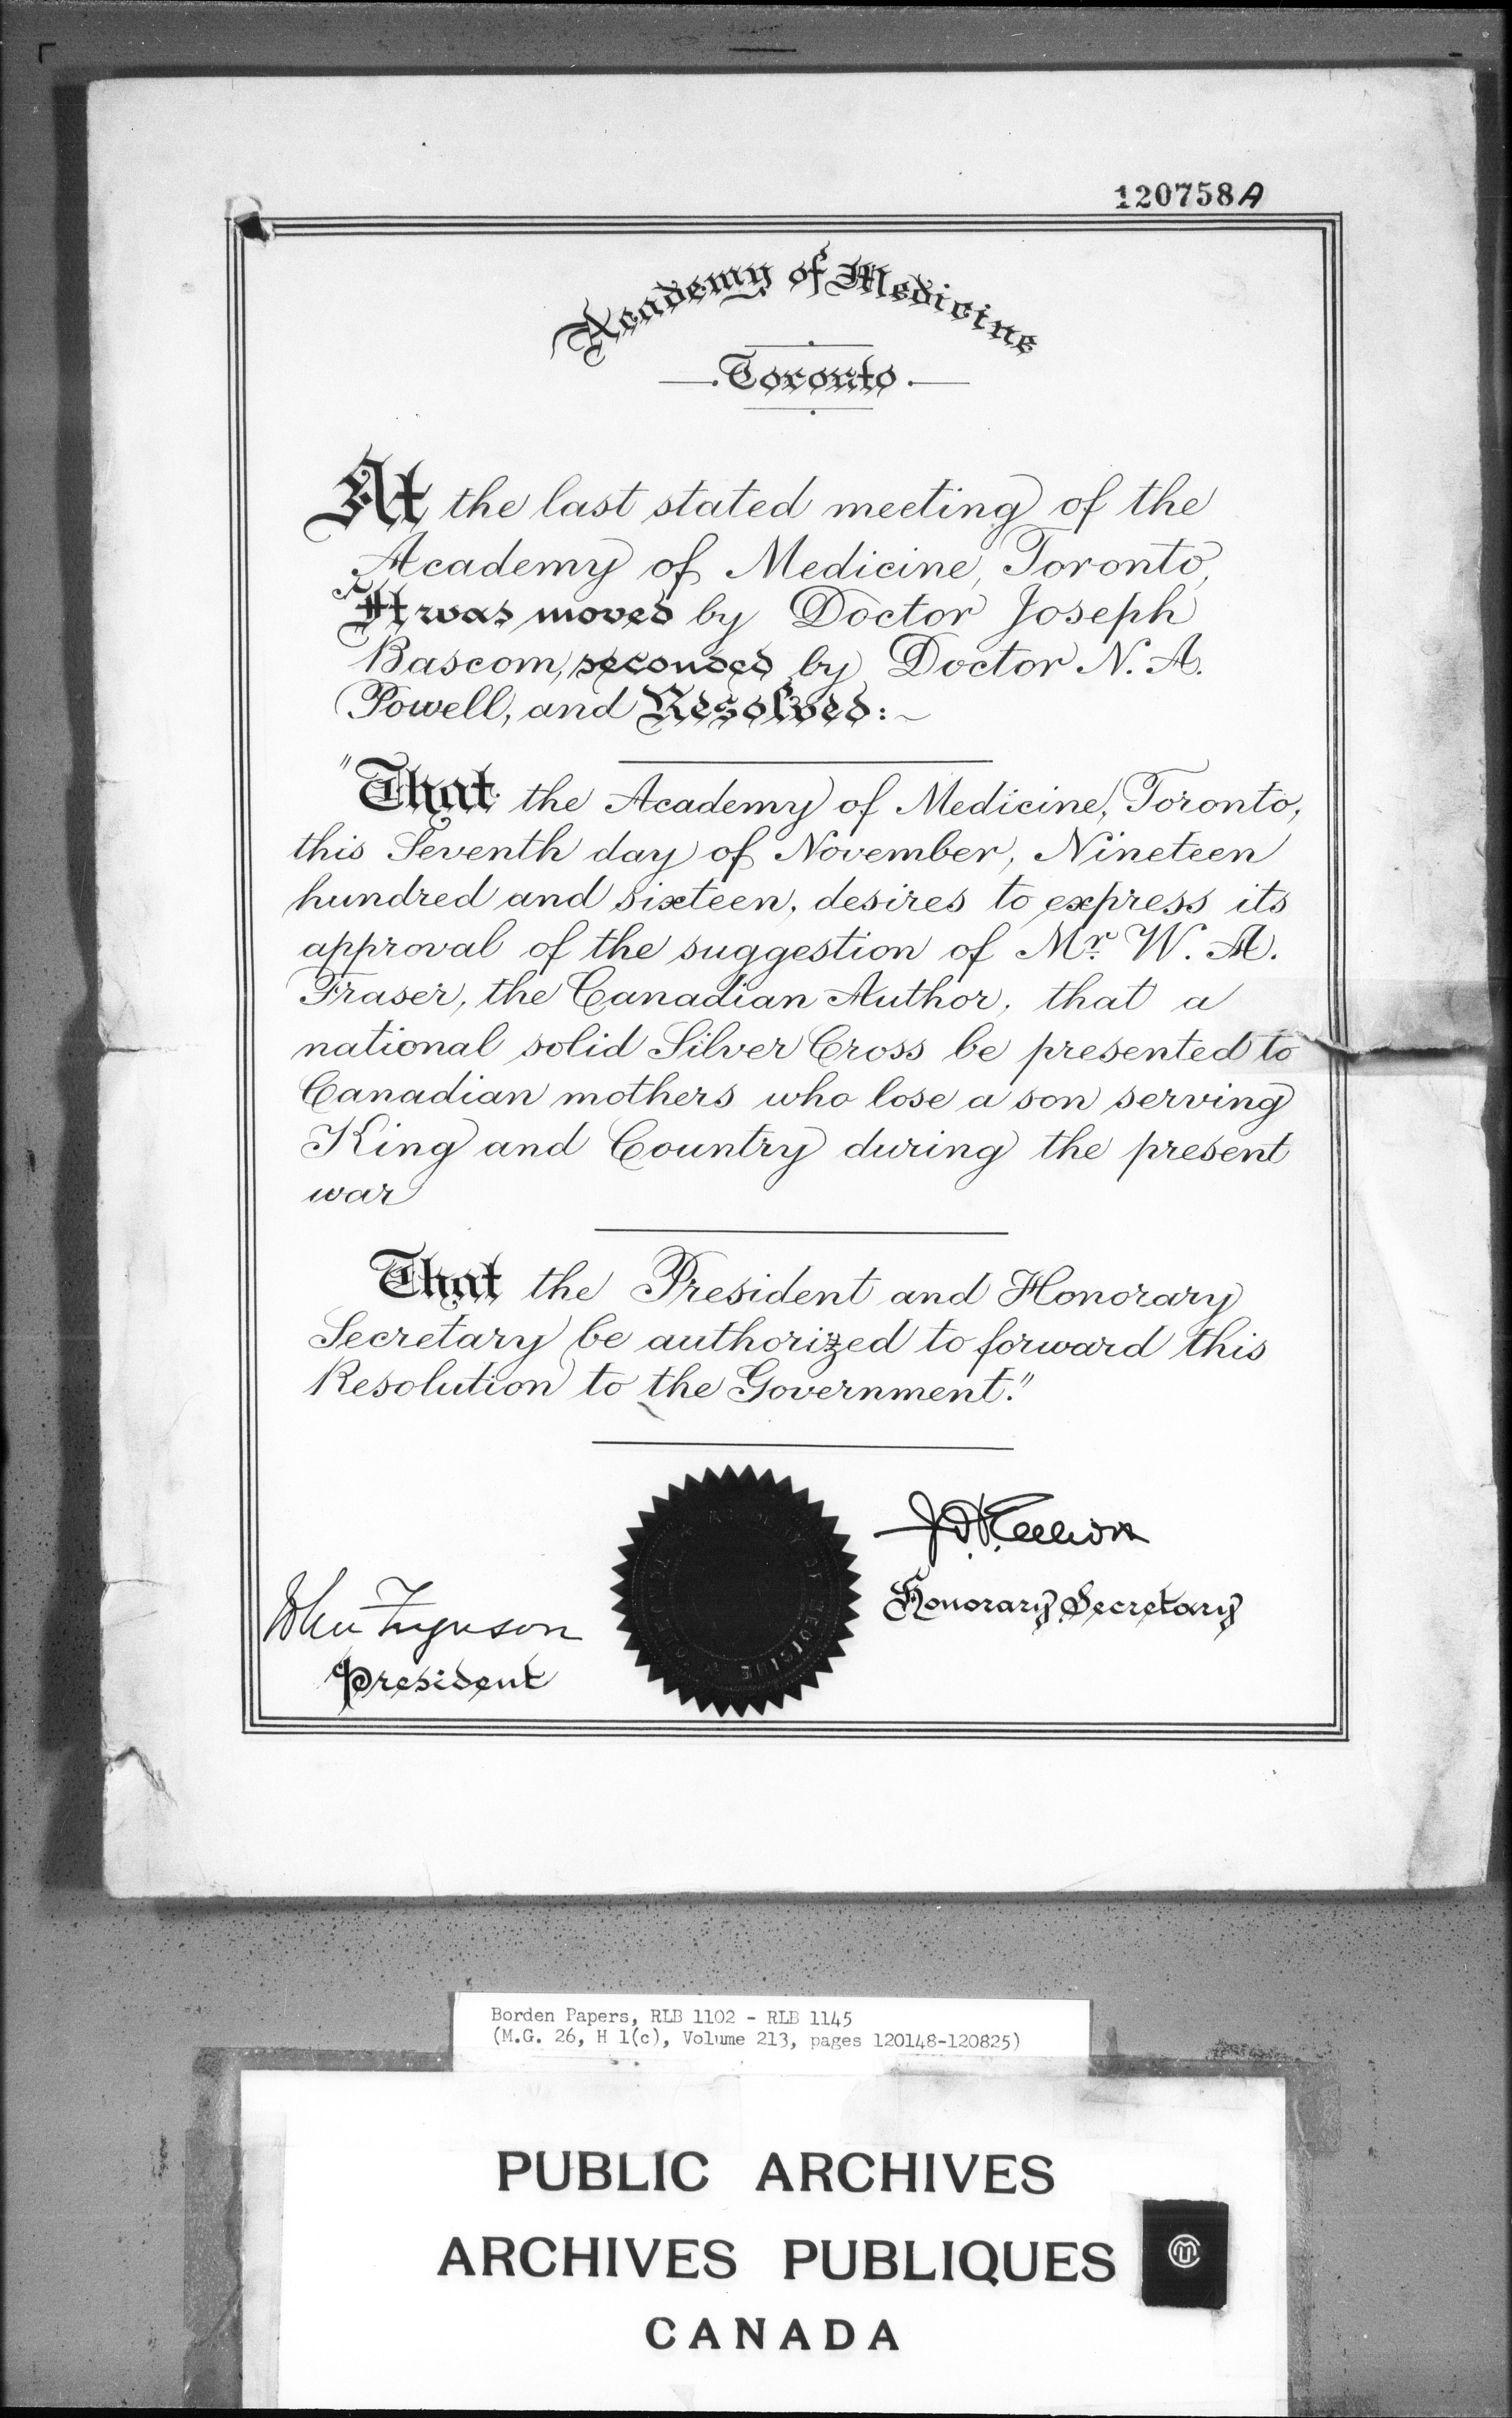 120758A
Academy of Medicine
Toronto
At the last stated meeting of the
Academy of Medicine, Toronto,
It was moved by Doctor Joseph
Bascom, seconded by Doctor N. A.
Powell, and Resolved:~
"That the Academy of Medicine, Toronto,
this Seventh day of November, Nineteen
hundred and sixteen, desires to express its
approval of the suggestion of Mr. W. A.
Fraser, the Canadian Author, that a
national solid Silver Cross be presented to
Canadian mothers who lose a son serving
King and Country during the present
war
That the President and Honorary
Secretary be authorized to forward this
Resolution to the Government."
J. H. Elliott
Honorary Secretary
John Ferguson
President
ACADEMY OF MEDICINE TORONTO
Borden Papers, RLB 1102 - RLB 1145
(M.G. 26, H 1(c), Volume 213, pages 120148-120825)
PUBLIC ARCHIVES
ARCHIVES PUBLIQUES
CANADA